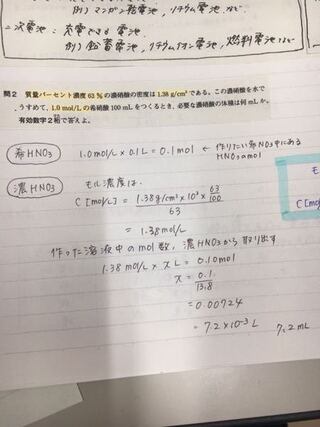 例) マンガン乾電池, リチウム電池, など.
二次電池: 充電できる電池
例) 鉛蓄電池, リチウムイオン電池, 燃料電池など
問2 質量パーセント濃度 63 %の濃硝酸の密度は 1.38 g/cm³ である。この濃硝酸を水で
うすめて、1.0 mol/L の希硝酸 100 mL をつくるとき、必要な濃硝酸の体積は何 mL か。
有効数字2桁で答えよ。
希HNO3 1.0mol/L × 0.1L = 0.1mol ← 作りたい希NO3中にある
HNO3のmol
濃HNO3 モル濃度は.
C[mol/L] = 1.38g/cm³ × 10³ × 63/100
63
= 1.38mol/L
作った溶液中のmol数, 濃HNO3から取り出す
1.38 mol/L × x L = 0.10mol
x = 0.1/13.8
= 0.00724
= 7.2×10⁻³ L 7.2mL
も
C[mo